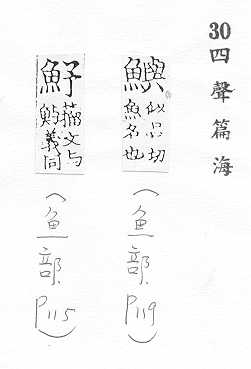 30四聲篇海
鱮 似呂切
魚名也
(鱼部 P119)
魣 籀文与
義同
(鱼部 P115)